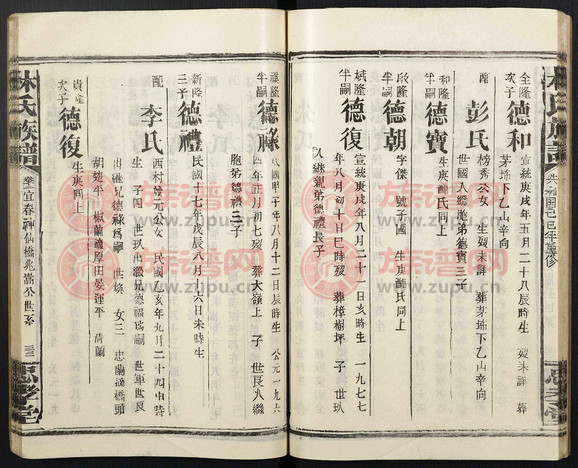 全隆
次子
德和
宣統庚戌年五月二十八辰時生 歿未詳 葬
茅坳下乙山辛向
配
彭氏
榜秀公女 生歿未詳 葬茅坳下乙山辛向
世國入繼胞弟德寶三子
和隆
半嗣
德寶
生庚氏同上
啟隆
半嗣
德朝
字傑 號子國 生庚氏同上
斌隆
半嗣
德復
宣統庚戌年八月二十 日亥時生 一九七七
年八月初十日巳時歿 葬樟樹坪 子 世玖
入繼親弟德禮長子
祿隆
半嗣
德祿
年八月十二日辰時生 公元一九六
四年正月初七歿 葬大嶺上 子 世長入繼
胞弟德禮三子
新隆
三子
德禮
民國十七年戊辰八月十六日未時生
配
李氏
西村 元公女 民國乙亥年九月二十四申時
生 子四 世玖出繼兄德復為嗣 世華世良
出繼兄德祿為嗣 世煥 女三 忠蘭適橋頭
胡建平 椒蘭適原田晏運平 清蘭
貴隆
次子
德復
生庚同上
林氏族譜
宜春神仙橋兆嵩公世系
三三
忠孝堂
族谱网
www.zupu.cn
族谱网
www.zupu.cn